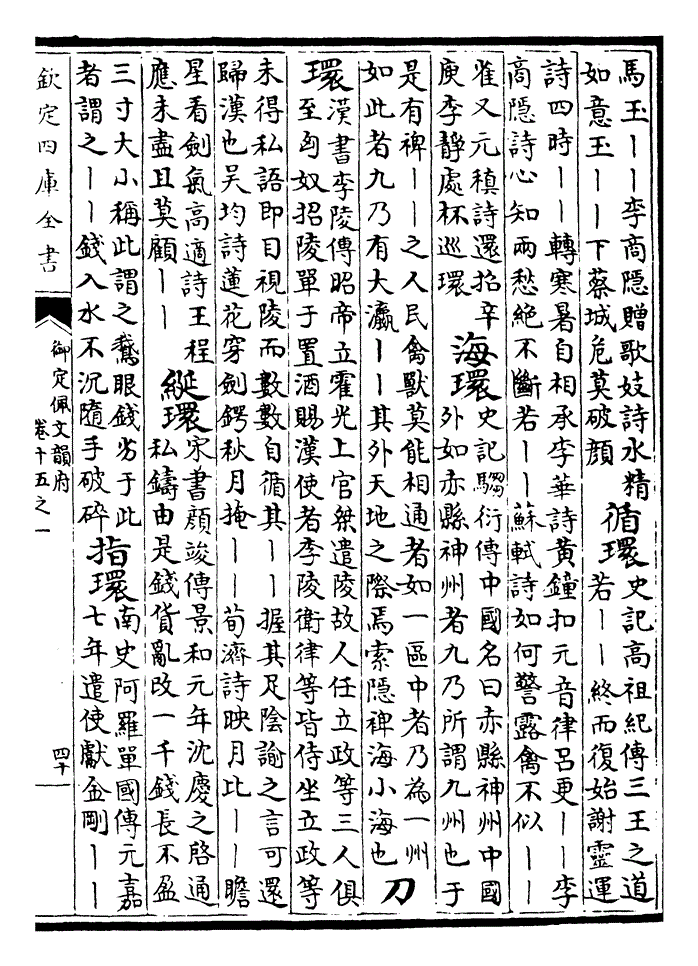 馬玉丨丨李商隱贈歌妓詩水精
如意玉丨丨下蔡城危莫破顔
循環
史記高祖紀傳三王之道
若丨丨終而復始謝靈運
詩四時丨丨轉寒暑自相承李華詩黃鐘扣元音律呂更丨丨李
高隱詩心知兩愁絕不斷若丨丨蘇軾詩如何警露禽不似丨丨
雀又元稹詩還招辛
庾李靜處杯巡環
海環
史記騶衍傳中國名曰赤縣神州中國
外如赤縣神州者九乃所謂九州也于
是有裨丨丨之人民禽獸莫能相通者如一區中者乃為一州
如此者九乃有大瀛丨丨其外天地之際焉索隱裨海小海也
刀
環
漢書李陵傳昭帝立霍光上官桀遣陵故人任立政等三人俱
至匈奴招陵單于置酒賜漢使者李陵衛律等皆侍坐立政等
未得私語即目視陵而數數自循其丨丨握其足陰諭之言可還
歸漢也吳均詩蓮花穿劍鍔秋月掩丨丨荀濟詩映月比丨丨瞻
星看劍氣高適詩王程
應未盡且莫顧丨丨
綖環
宋書顔竣傳景和元年沈慶之啓通
私鑄由是錢貨亂改一千錢長不盈
三寸大小稱此謂之鵞眼錢劣于此
者謂之丨丨錢入水不沉隨手破碎
指環
南史阿羅單國傳元嘉
七年遣使獻金剛丨丨
欽定四庫全書
御定佩文韻府
卷十五之一
四十